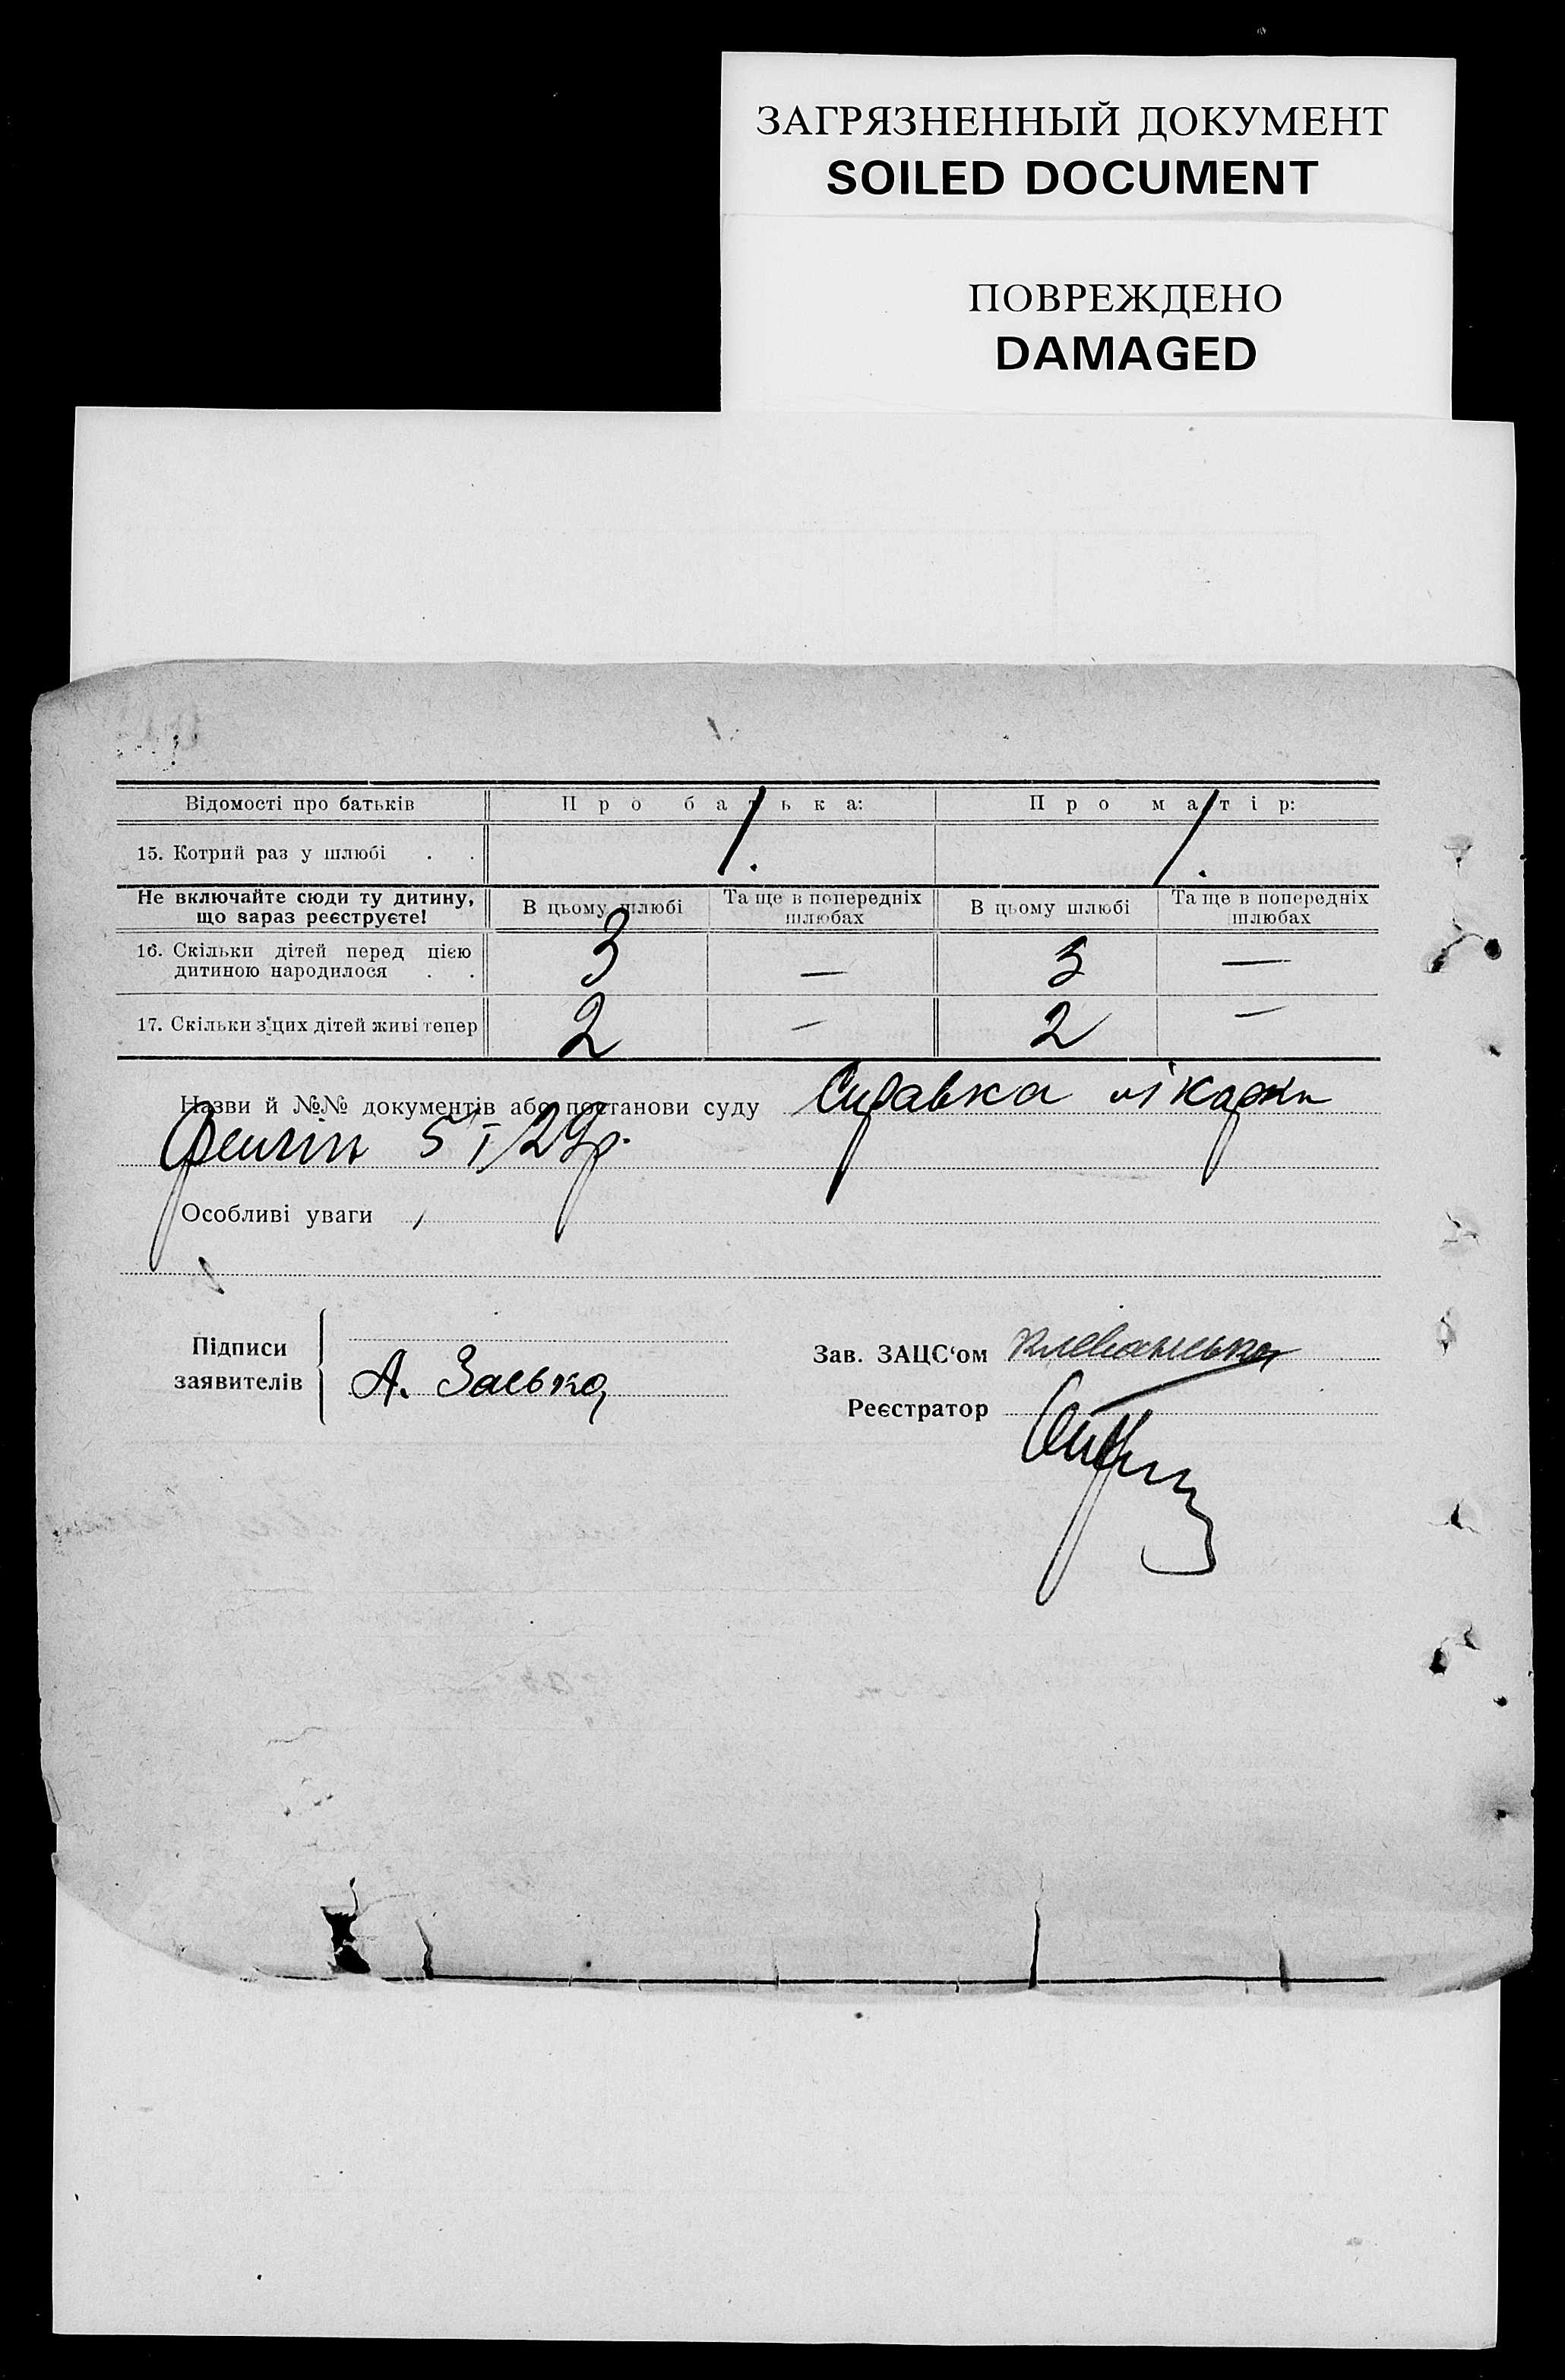 ЗАГРЯЗНЕННЫЙ ДОКУМЕНТ
SOILED DOCUMENT
ПОВРЕЖДЕНО
DAMAGED
Відомості про батьків Про батька: Про матір:
15. Котрий раз у шлюбі . . 1. 1.
Не включайте сюди ту дитину, що зараз реєструєте! В цьому шлюбі Та ще в попередніх шлюбах В цьому шлюбі Та ще в попередніх шлюбах
16. Скільки дітей перед цією дитиною народилося . . 3 — 3 —
17. Скільки з цих дітей живі тепер 2 — 2 —
Назви й №№ документів або постанови суду Справка лікарки
5 I/29р.
Особливі уваги
Підписи заявителів
А. Заєвка
Зав. ЗАЦС‘ом
Реєстратор